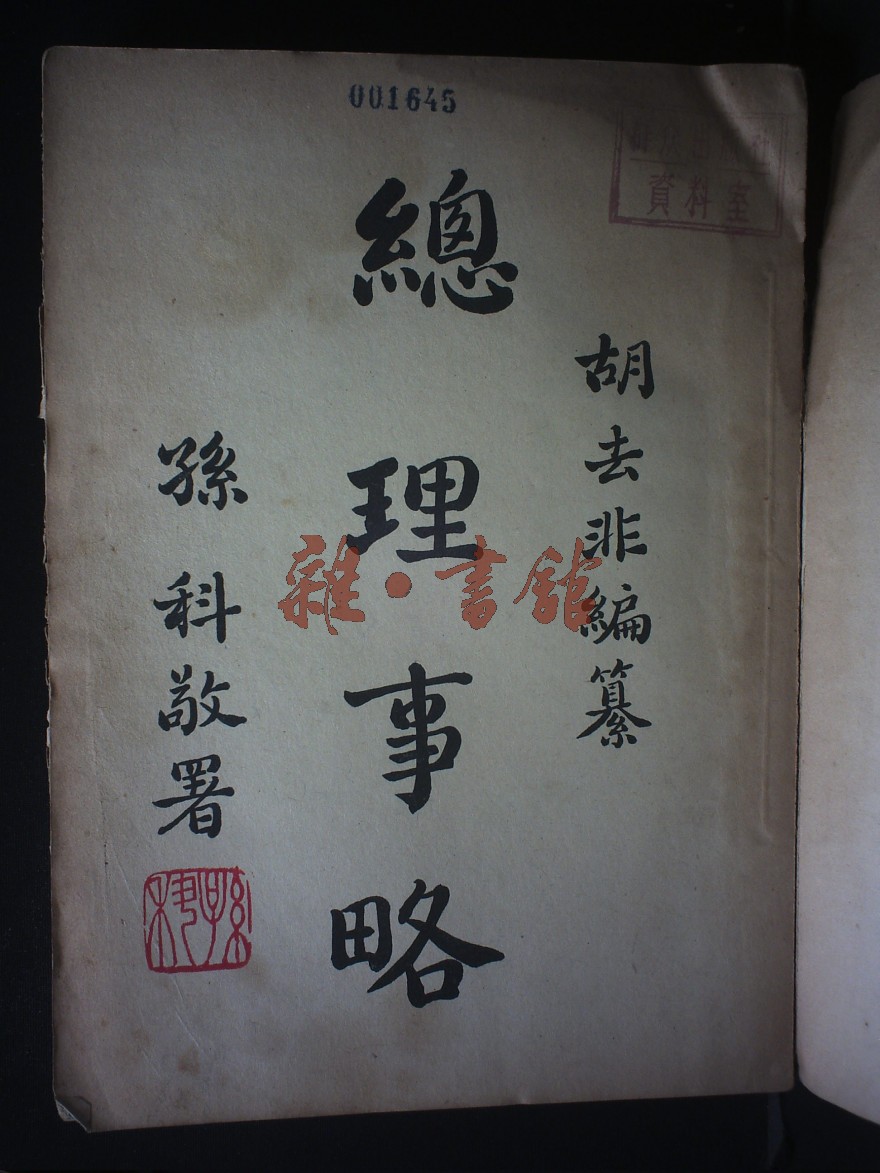 001645
資料室
胡去非編纂
總理事略
孫科敬署
雜·書館